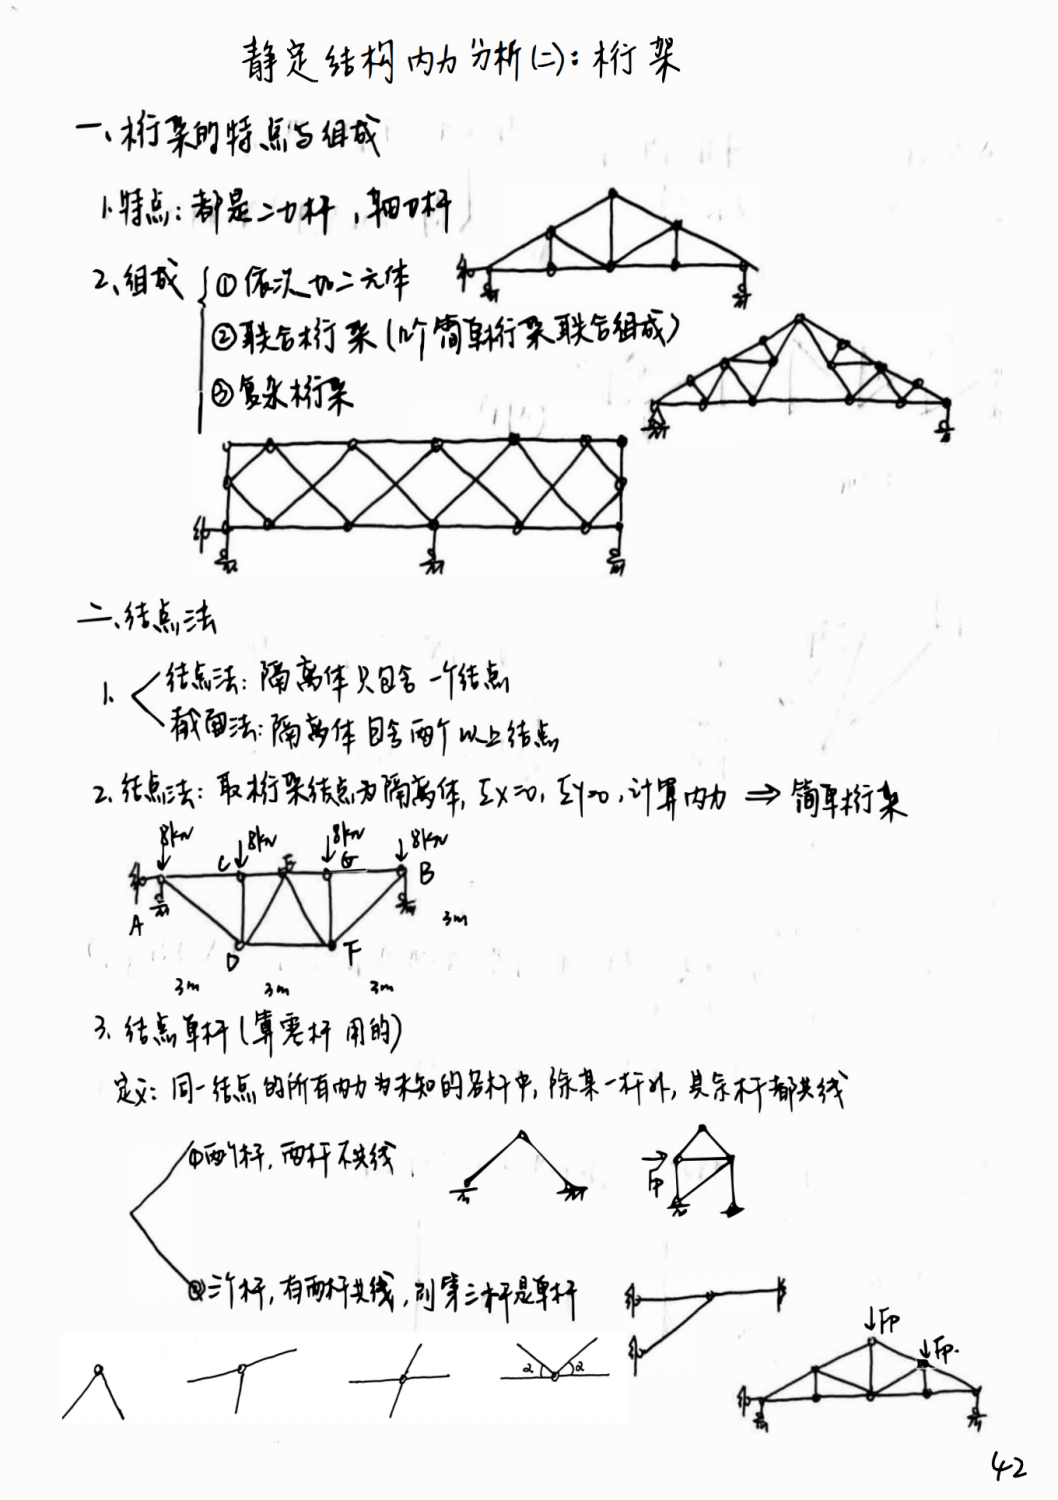 静定结构内力分析(二)：桁架
一、桁架的特点与组成
1.特点：都是二力杆，轴力杆
2、组成 ①依次加二元体
②联合桁架(几个简单桁架联合组成)
③复杂桁架
二、结点法
1. 结点法：隔离体只包含一个结点
截面法：隔离体包含两个以上结点
2.结点法：取桁架结点为隔离体，ΣX=0，ΣY=0，计算内力 ⇒ 简单桁架
8kN 8kN 8kN 8kN
C E G B
A
3m
D F
3m 3m 3m
3.结点单杆(算零杆用的)
定义：同一结点的所有内力为未知的各杆中，除某一杆外，其余杆都共线
①两个杆，两杆不共线
Fp
②三个杆，有两杆共线，则第三杆是单杆
Fp
Fp
α α
42